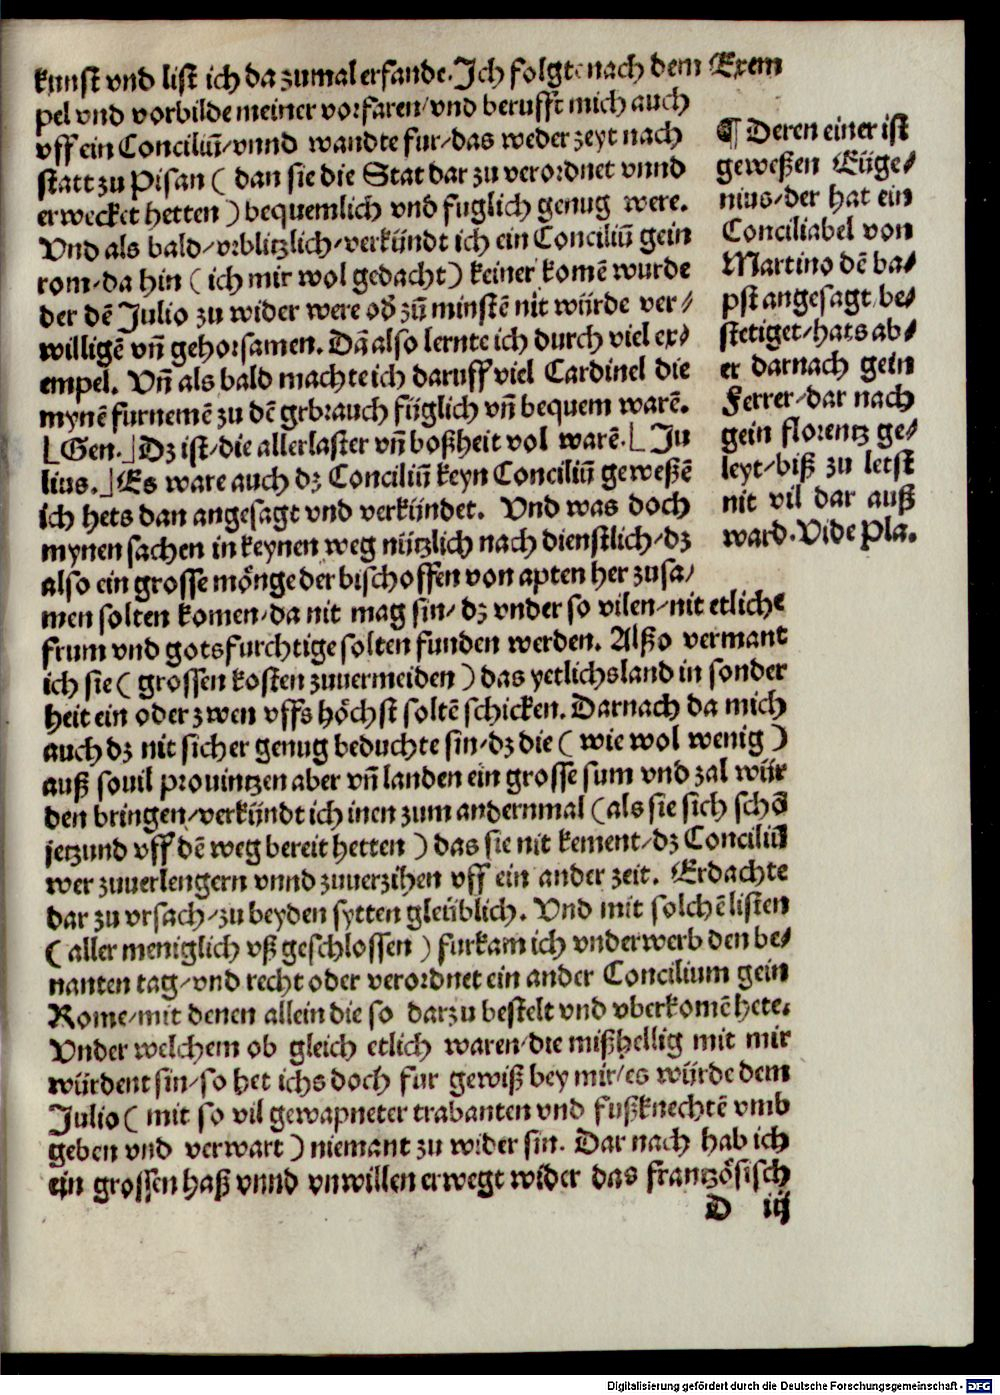 kunst vnd list ich da zumal erfande. Ich folgte nach dem Exem
pel vnd vorbilde meiner vorfaren/vnd berufft mich auch
vff ein Conciliū/vnnd wandte fur/das weder zeyt nach
statt zu Pisan ( dan sie die Stat dar zu verordnet vnnd
erwecket hetten ) bequemlich vnd fuglich genug were.
Vnd als bald/vrblitzlich/verkündt ich ein Conciliū gein
rom/da hin ( ich mir wol gedacht ) keiner komē wurde
der dē Julio zu wider were od̕ zū minstē nit würde ver/
willigē vn̄ gehorsamen. Dā also lernte ich durch viel ex/
empel. Vn̄ als bald machte ich daruff viel Cardinel die
mynē furnemē zu dē gebrauch füglich vn̄ bequem warē.
[Gen.] Dz ist/die allerlaster vn̄ boßheit vol warē. [Ju
lius.] Es ware auch dz Conciliū keyn Conciliū geweßē
ich hets dan angesagt vnd verkündet. Vnd was doch
mynen sachen in keynen weg nützlich nach dienstlich/dz
also ein grosse mönge der bischoffen von apten her zusa/
men solten komen/da nit mag sin/dz vnder so vilen/nit etliche
frum vnd gotsfurchtige solten funden werden. Alßo vermant
ich sie ( grossen kosten zuuermeiden ) das yetlichs land in sonder
heit ein oder zwen vffs höchst soltē schicken. Darnach da mich
auch dz nit sicher genug beduchte sin/dz die ( wie wol wenig )
auß souil prouintzen aber vn̄ landen ein grosse sum vnd zal wür
den bringen/verkündt ich inen zum andernmal (als sie sich schō
jetzund vff dē weg bereit hetten ) das sie nit kement/dz Conciliū
wer zuuerlengern vnnd zuuerzihen vff ein ander zeit. Erdachte
dar zu vrsach/zu beyden sytten gleüblich. Vnd mit solchē listen
( aller meniglich vß geschlossen ) furkam ich vnderwerb den be/
nanten tag/vnd recht oder verordnet ein ander Concilium gein
Rome/mit denen allein die so darzu bestelt vnd vberkomē hete.
Vnder welchem ob gleich etlich waren/die mißhellig mit mir
würdent sin/so het ichs doch fur gewiß bey mir/es würde dem
Julio ( mit so vil gewapneter trabanten vnd fußknechtē vmb
geben vnd verwart ) niemant zu wider sin. Dar nach hab ich
ein grossen haß vnnd vnwillen erwegt wider das frantzösisch
D iij
¶ Deren einer ist
geweßen Eüge/
nius/der hat ein
Conciliabel von
Martino dē ba/
pst angesagt be/
stetiget/hats ab/
er darnach gein
Ferrer/dar nach
gein florentz ge/
leyt/biß zu letst
nit vil dar auß
ward. Vide Pla.
Digitalisierung gefördert durch die Deutsche Forschungsgemeinschaft - DFG